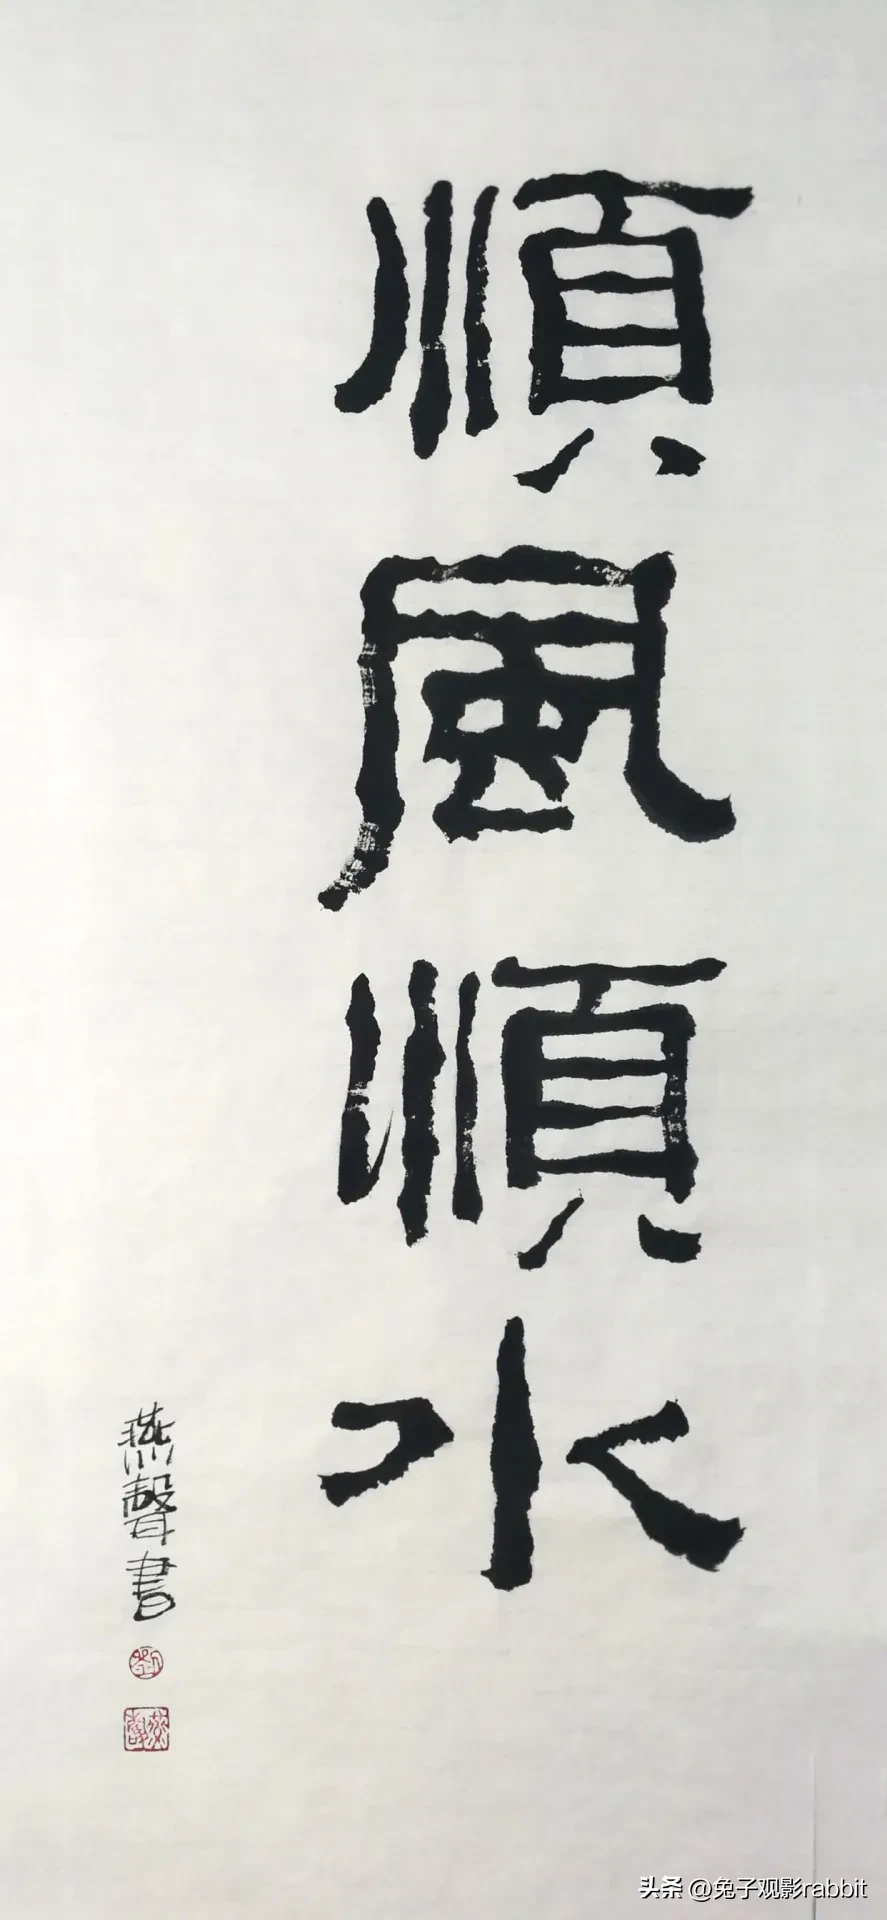 順風順水
燕聲書
头条 @兔子观影rabbit